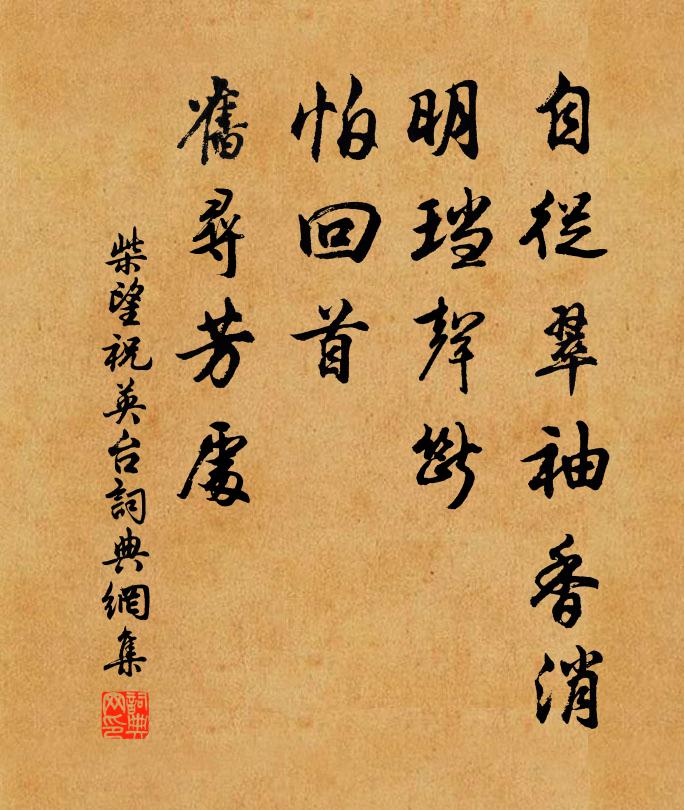 自從翠袖香消
明璫聲斷
怕回首
舊尋芳處
柴望祝英台詞典網集
詞典網印